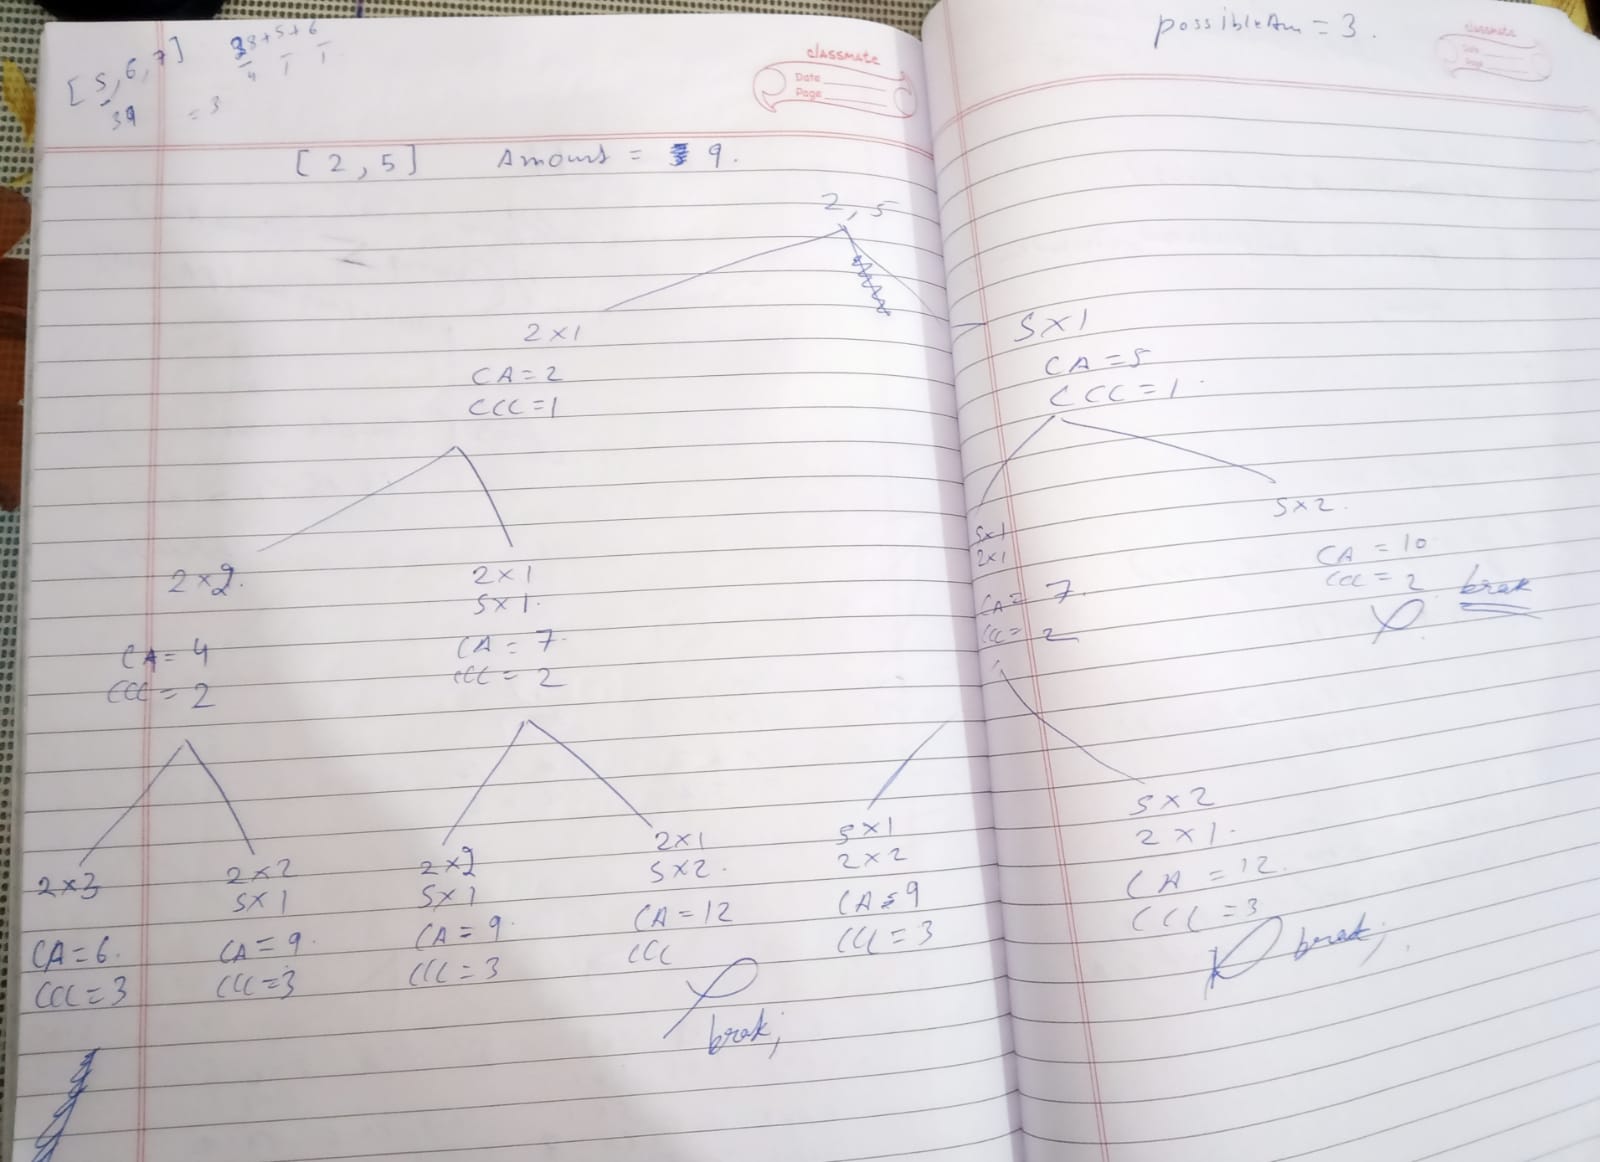 [5, 6, 7]
39 = 3
8+5+6
4 1 1
classmate
Date
Page
[2, 5] Amount = 9.
2, 5
2×1
CA=2
CCC=1
2×2.
CA=4
CCC=2
2×1
5×1.
CA=7.
CCC=2
2×3
CA=6.
CCC=3
2×2
5×1
CA=9.
CCC=3
2×2
5×1
CA=9.
CCC=3
2×1
5×2.
CA=12
CCC
brak;
5×1
2×2
CA=9
CCC=3
possibleAm = 3.
classmate
Date
Page
5×1
CA=5
CCC=1.
5×1
2×1
CA=7.
CCC=2
5×2.
CA=10
CCC=2 brak
5×2
2×1.
CA=12.
CCC=3
break;